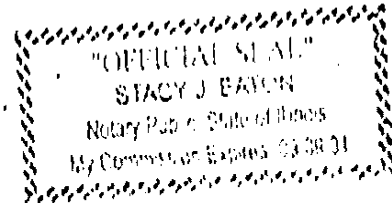 "OFFICIAL SEAL"
STACY J. EATON
Notary Public State of Illinois
My Commission Expires